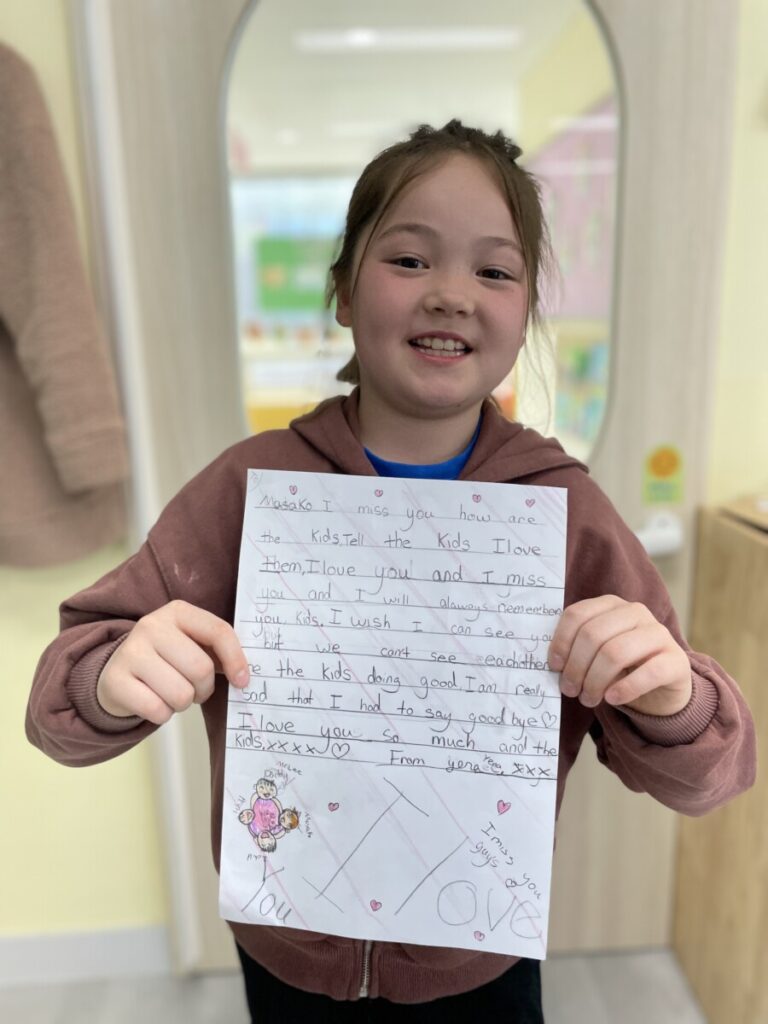 Masako I miss you how are
the Kids. Tell the Kids I love
them, I love you and I miss
you and I will alaways remember
you, Kids, I wish I can see you
but we can't see eachother
the Kids doing good. I am realy
sad that I had to say good bye
I love you so much and the
Kids. xxxx
From yena xxx
I miss you
guys
You I Love